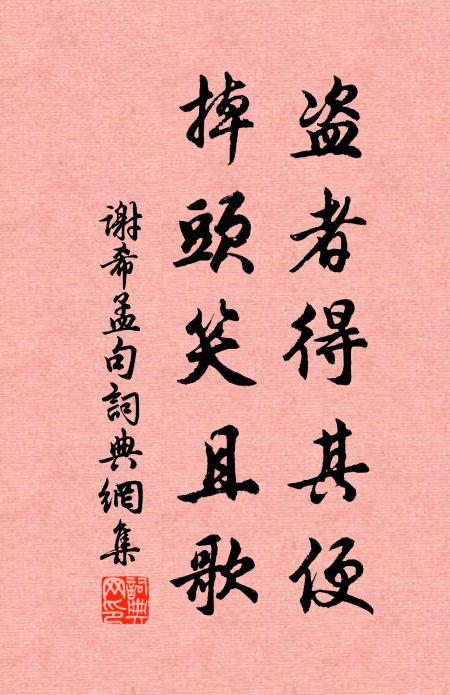 盗者得其便
掉頭笑且歌
謝希孟句詞典網集
詞典网印